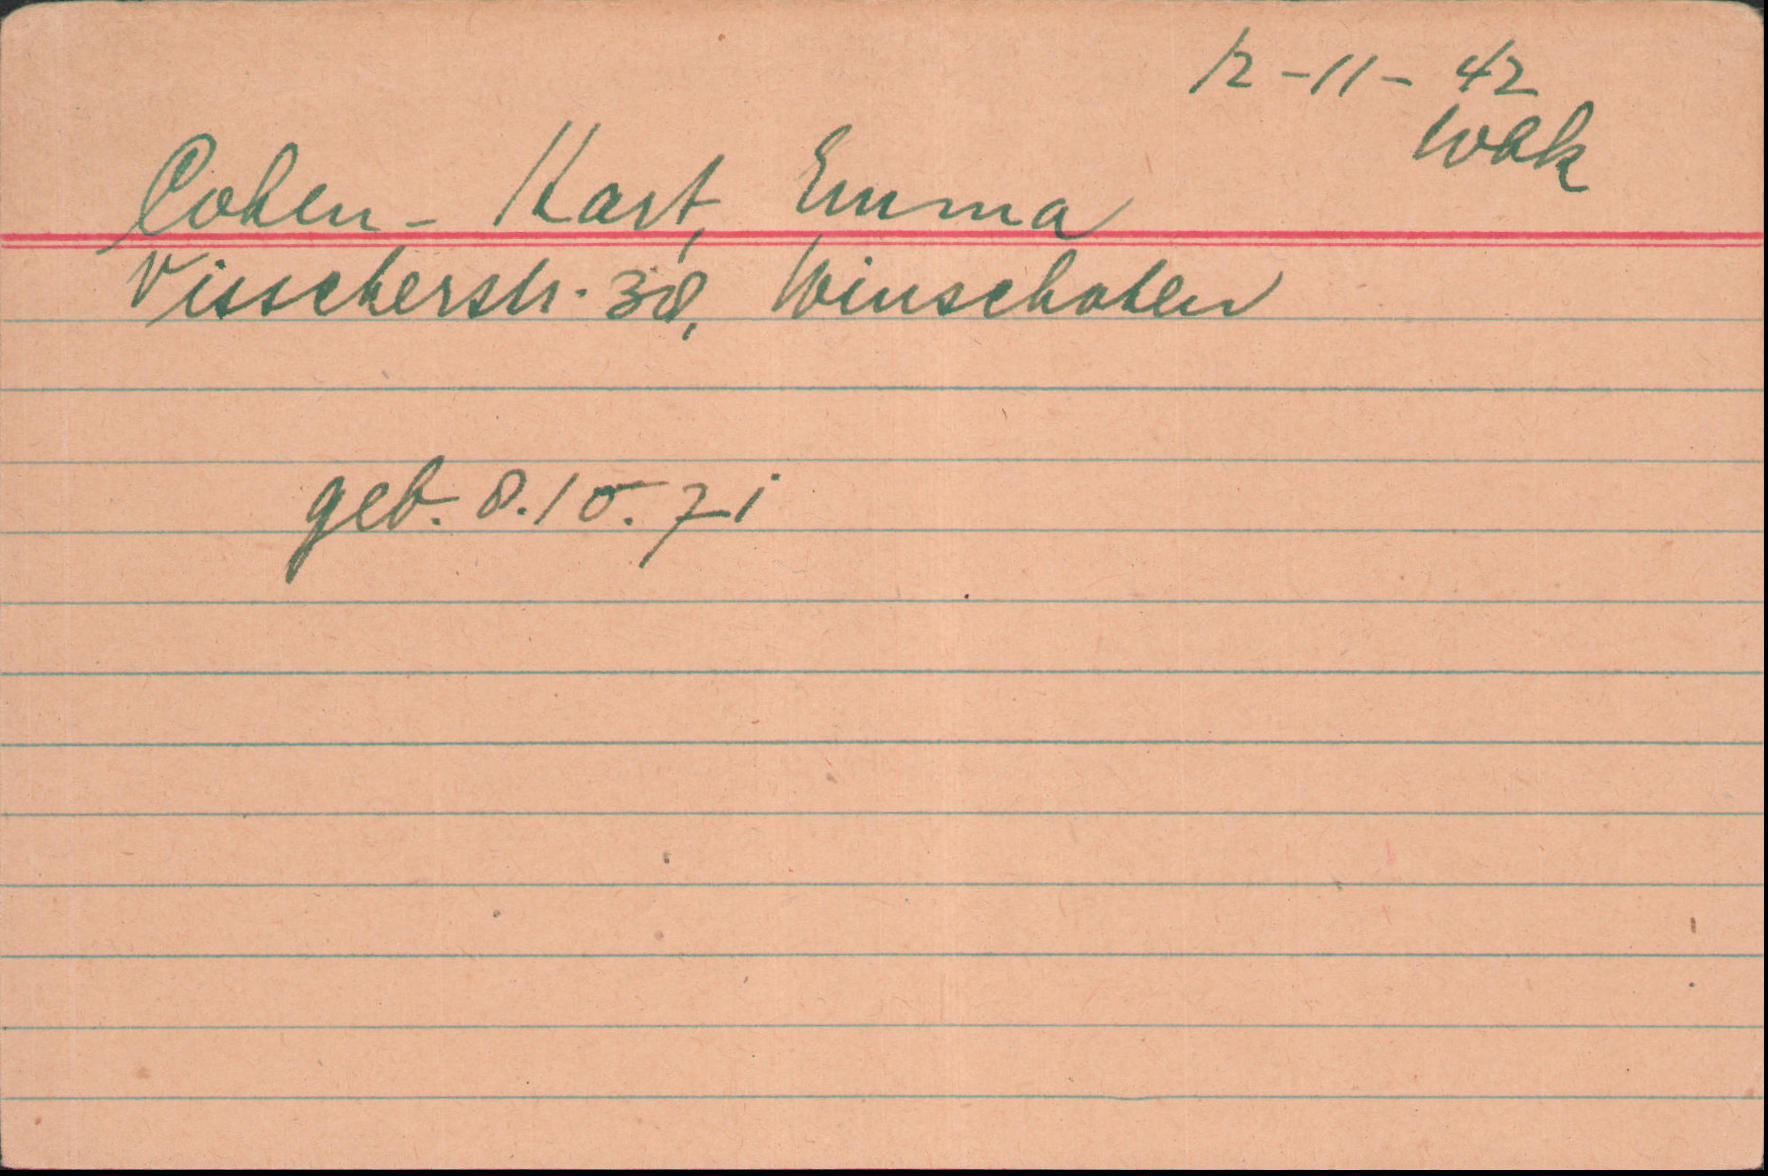 12-11-42
Wbk
Cohen-Hart, Emma
Visscherstr. 38, Winschoten
geb. 8.10.71